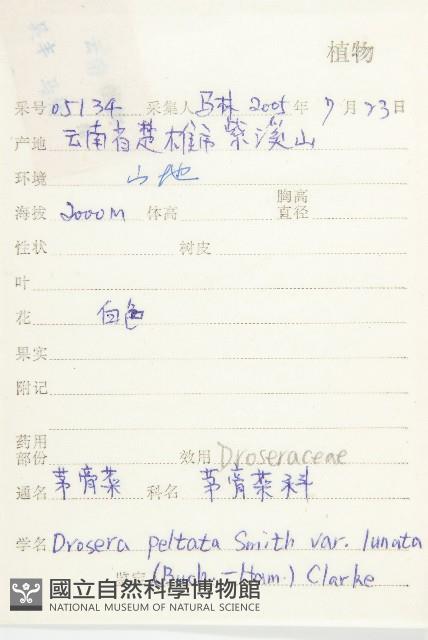 植物
采号 05134 采集人 马林 2005年 7月23日
产地 云南省楚雄市紫溪山
环境 山地
海拔 2000M 体高 胸高直径
性状 树皮
叶
花 白色
果实
附记
药用部份 效用 Droseraceae
通名 茅膏菜 科名 茅膏菜科
学名 Drosera peltata Smith var. lunata
鉴定 (Buch.-Ham.) Clarke
國立自然科學博物館
NATIONAL MUSEUM OF NATURAL SCIENCE